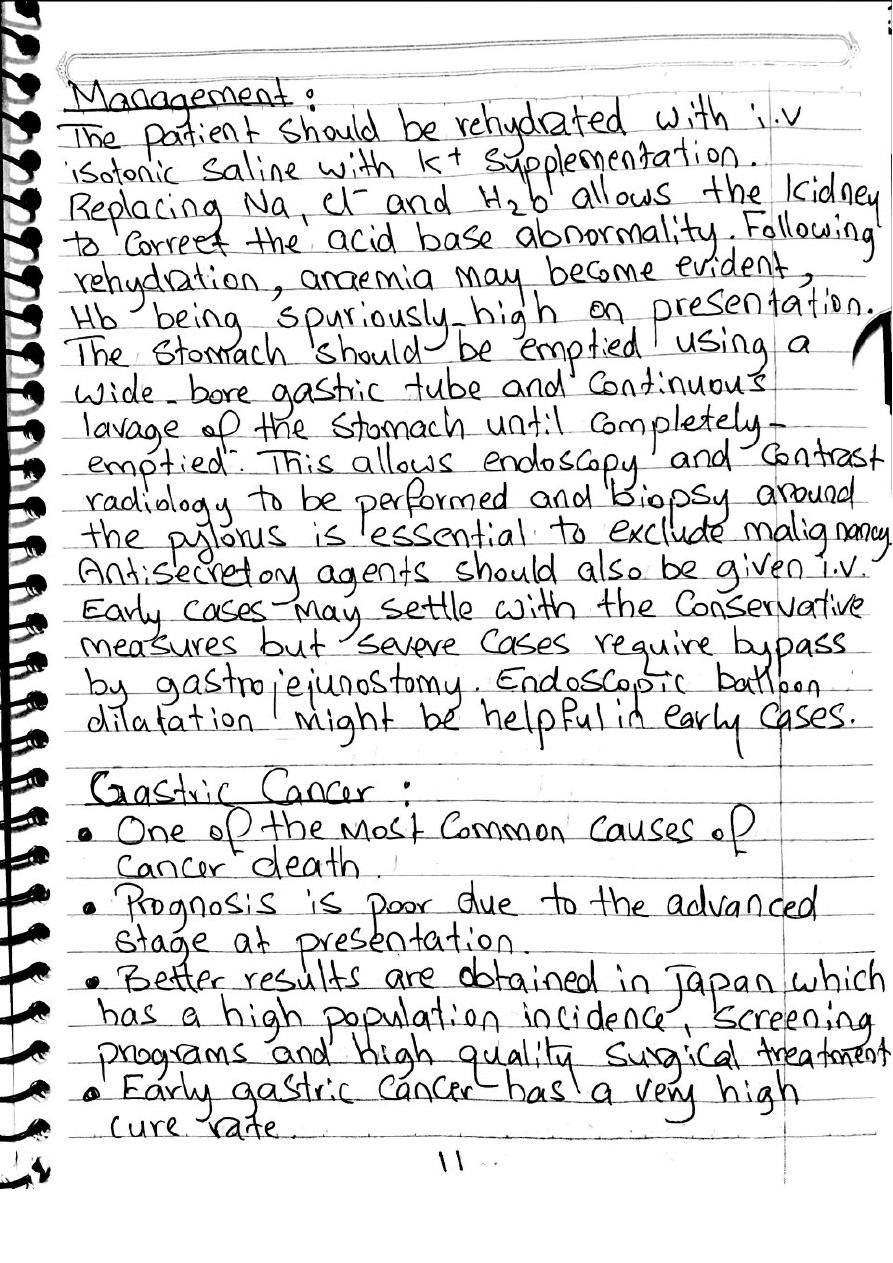 Management:
The patient should be rehydrated with i.v
isotonic saline with K+ supplementation.
Replacing Na, Cl- and H2O allows the kidney
to correct the acid base abnormality. Following
rehydration, anaemia may become evident,
Hb being spuriously high on presentation.
The stomach should be emptied using a
wide-bore gastric tube and continuous
lavage of the stomach until completely
emptied. This allows endoscopy and contrast
radiology to be performed and biopsy around
the pylorus is essential to exclude malignancy.
Antisecretory agents should also be given i.v.
Early cases may settle with the conservative
measures but severe cases require bypass
by gastrojejunostomy. Endoscopic balloon
dilatation might be helpful in early cases.
Gastric Cancer:
• One of the most common causes of
cancer death.
• Prognosis is poor due to the advanced
stage at presentation.
• Better results are obtained in Japan which
has a high population incidence, screening
programs and high quality surgical treatment
• Early gastric cancer has a very high
cure rate.
11